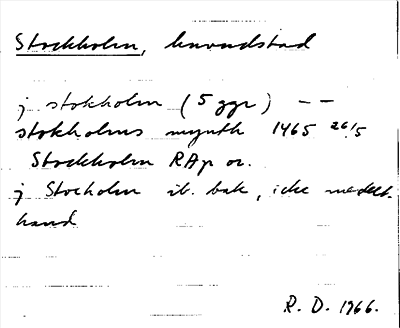 Stockholm, huvudstad
j stokholm (5 ggr) – –
stokholms mynth 1465 26/5
Stockholm RAp or.
j Stocholm ib. bak, icke medelt.
hand
R. D. 1966.